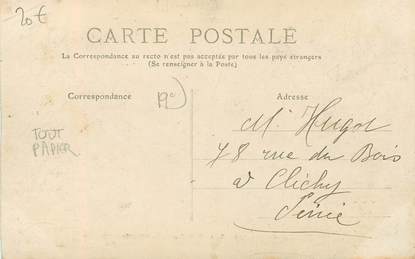 20€
CARTE POSTALE
La Correspondance au recto n'est pas acceptée par tous les pays étrangers
(Se renseigner à la Poste)
Correspondance
19e
Adresse
TOUT
PAPIER
Mr Hugot
78 rue du Bois
à Clichy
Seine